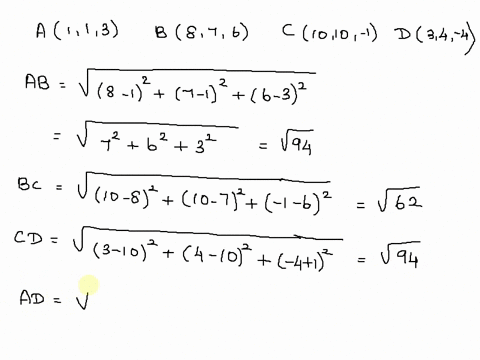 A (1, 1, 3) B (8, 7, 6) C (10, 10, -1) D (3, 4, -4)
AB = √(8-1)² + (7-1)² + (6-3)²
= √7² + 6² + 3² = √94
BC = √(10-8)² + (10-7)² + (-1-6)² = √62
CD = √(3-10)² + (4-10)² + (-4+1)² = √94
AD = √